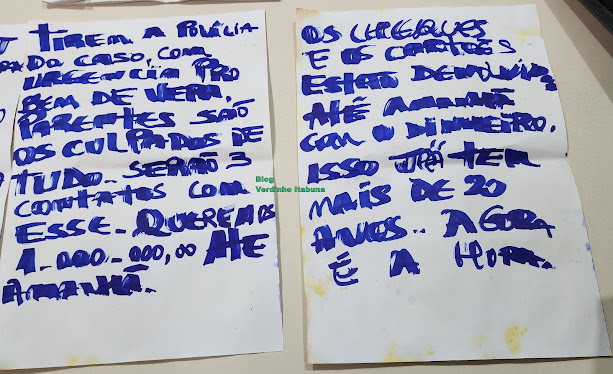 TIREM A POLÍCIA
DO CASO, COM
URGENCIA PRO
BEM DE VERA.
PARENTES SÃO
OS CULPADOS DE
TUDO. SERÃO 3
CONTATOS COM
ESSE. QUEREMOS
1.000.000,00 ATE
AMANHÃ.
OS CHEQUES
E OS CARTÕES
ESTÃO DEVOLVIDOS
ATÉ AMANHÃ
COM O DINHEIRO.
ISSO JÁ TEM
MAIS DE 20
ANOS.. AGORA
É A HORA.
Blog
Verdinho Itabuna